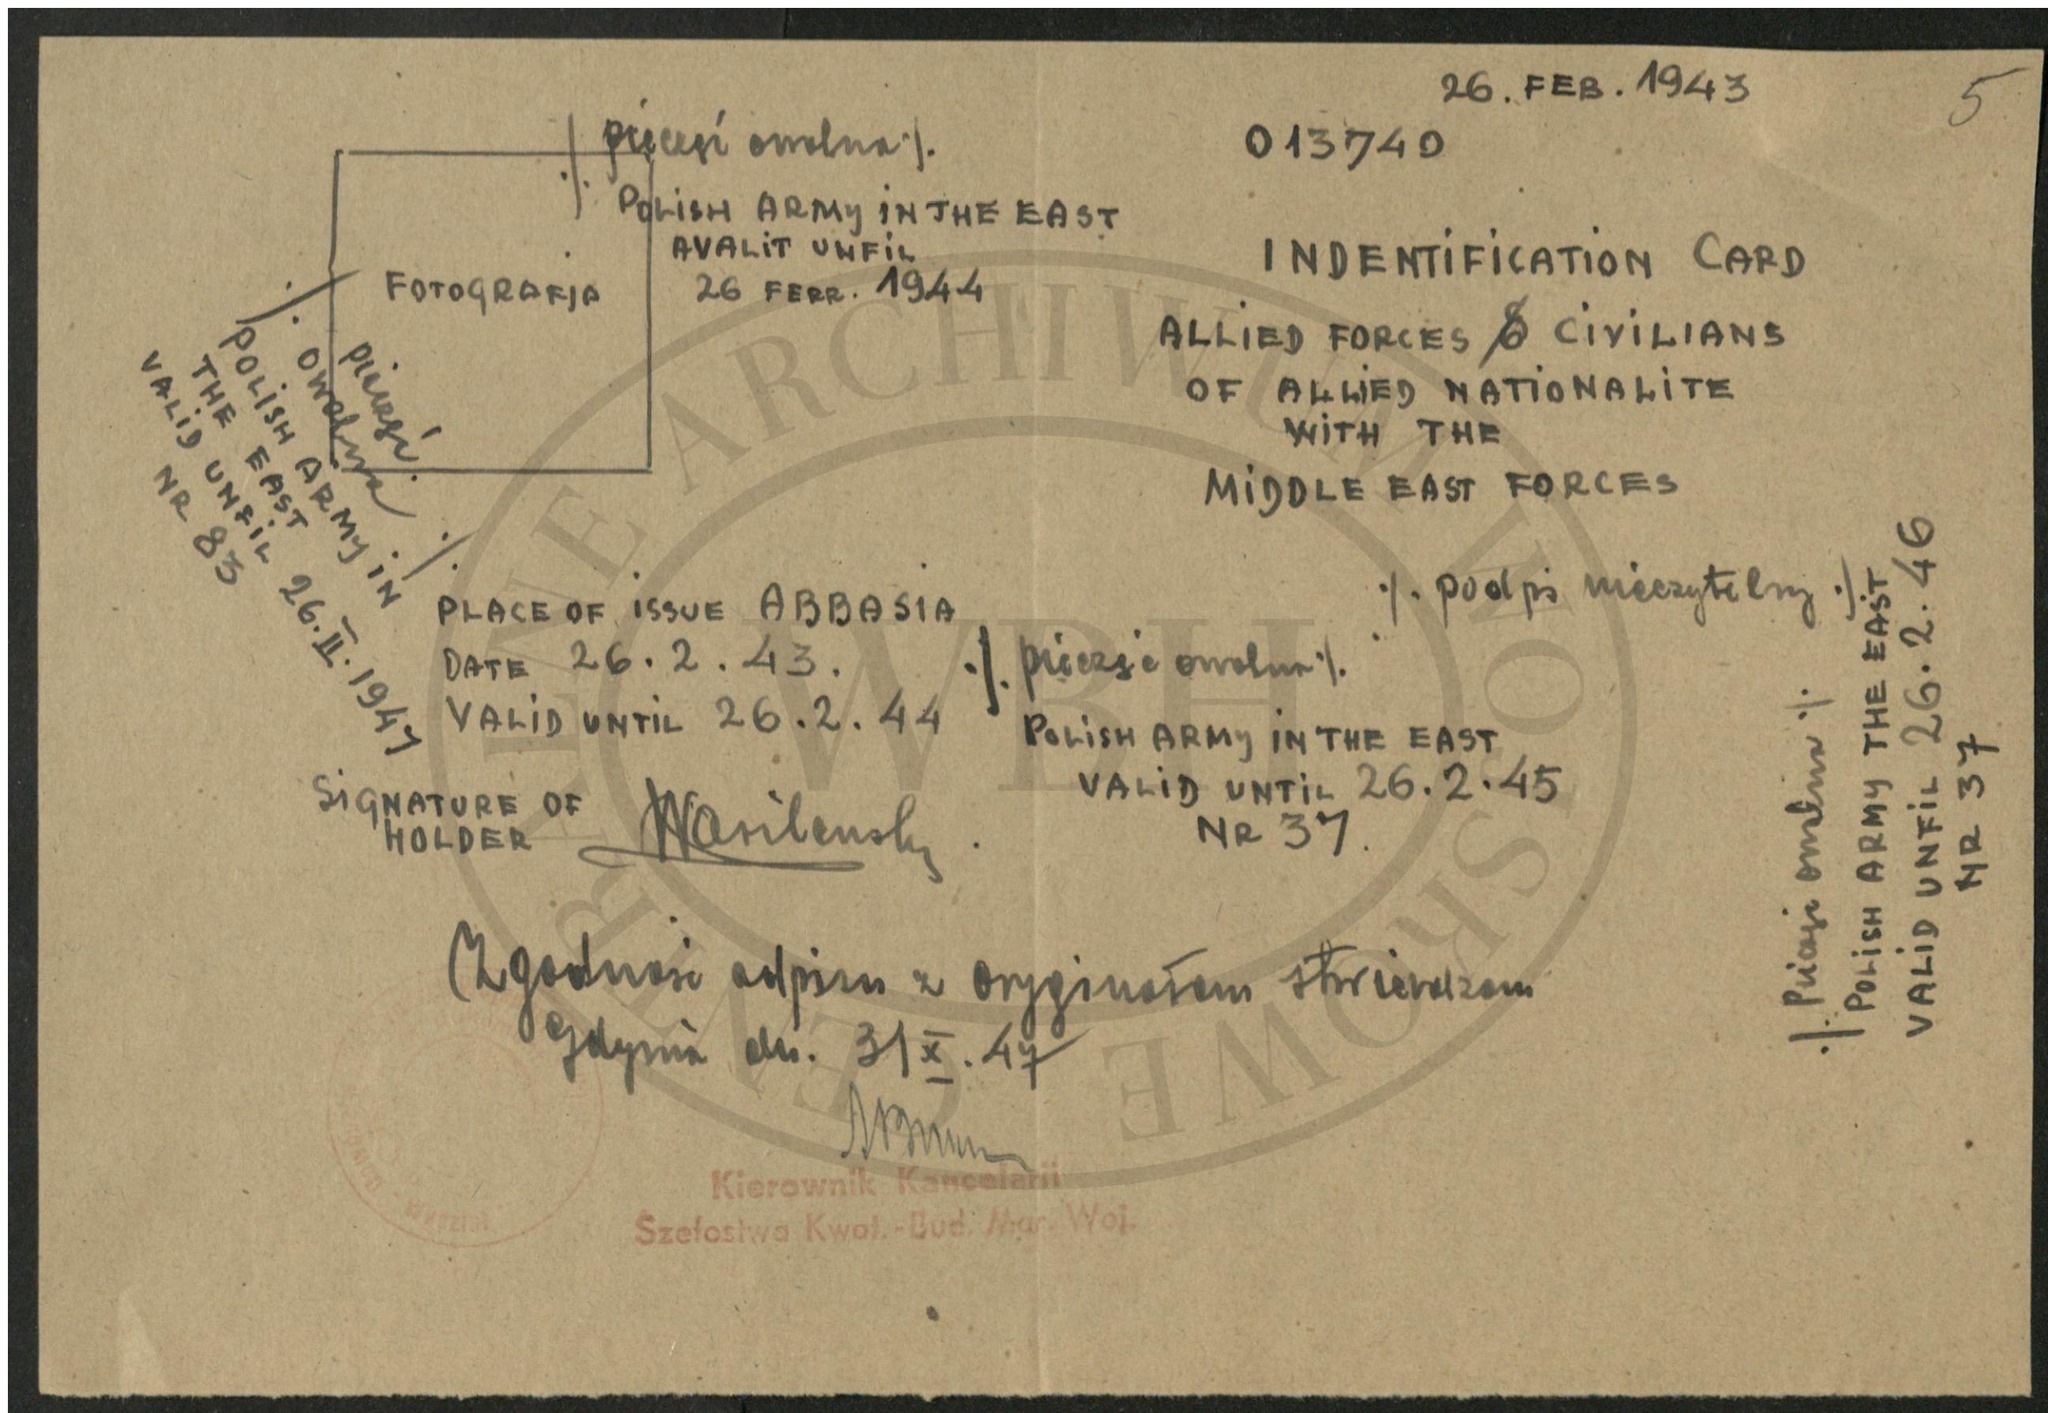 26. FEB. 1943
5
013740
./. pieczęć owalna ./.
POLISH ARMY IN THE EAST
AVALIT UNFIL
26 FERR. 1944
FOTOGRAFJA
INDENTIFICATION CARD
ALLIED FORCES & CIVILIANS
OF ALLIED NATIONALITE
WITH THE
MIDDLE EAST FORCES
./. pieczęć
owalna ./.
POLISH ARMY IN
THE EAST
VALID UNFIL 26.II.1947
NR 83
./. podpis nieczytelny ./.
PLACE OF ISSUE ABBASIA
DATE 26.2.43.
VALID UNTIL 26.2.44
./. pieczęć owalna ./.
POLISH ARMY IN THE EAST
VALID UNTIL 26.2.45
NR 37.
SIGNATURE OF
HOLDER
Wasilewsky
./. Pieczęć owalna ./.
POLISH ARMY THE EAST
VALID UNFIL 26.2.46
NR 37
Zgodność odpisu z oryginałem stwierdzam
Gdynia dn. 31 X. 47
Kierownik Kancelarii
Szefostwa Kwat.-Bud. Mar. Woj.
CENTRALNE ARCHIWUM WOJSKOWE
WBH